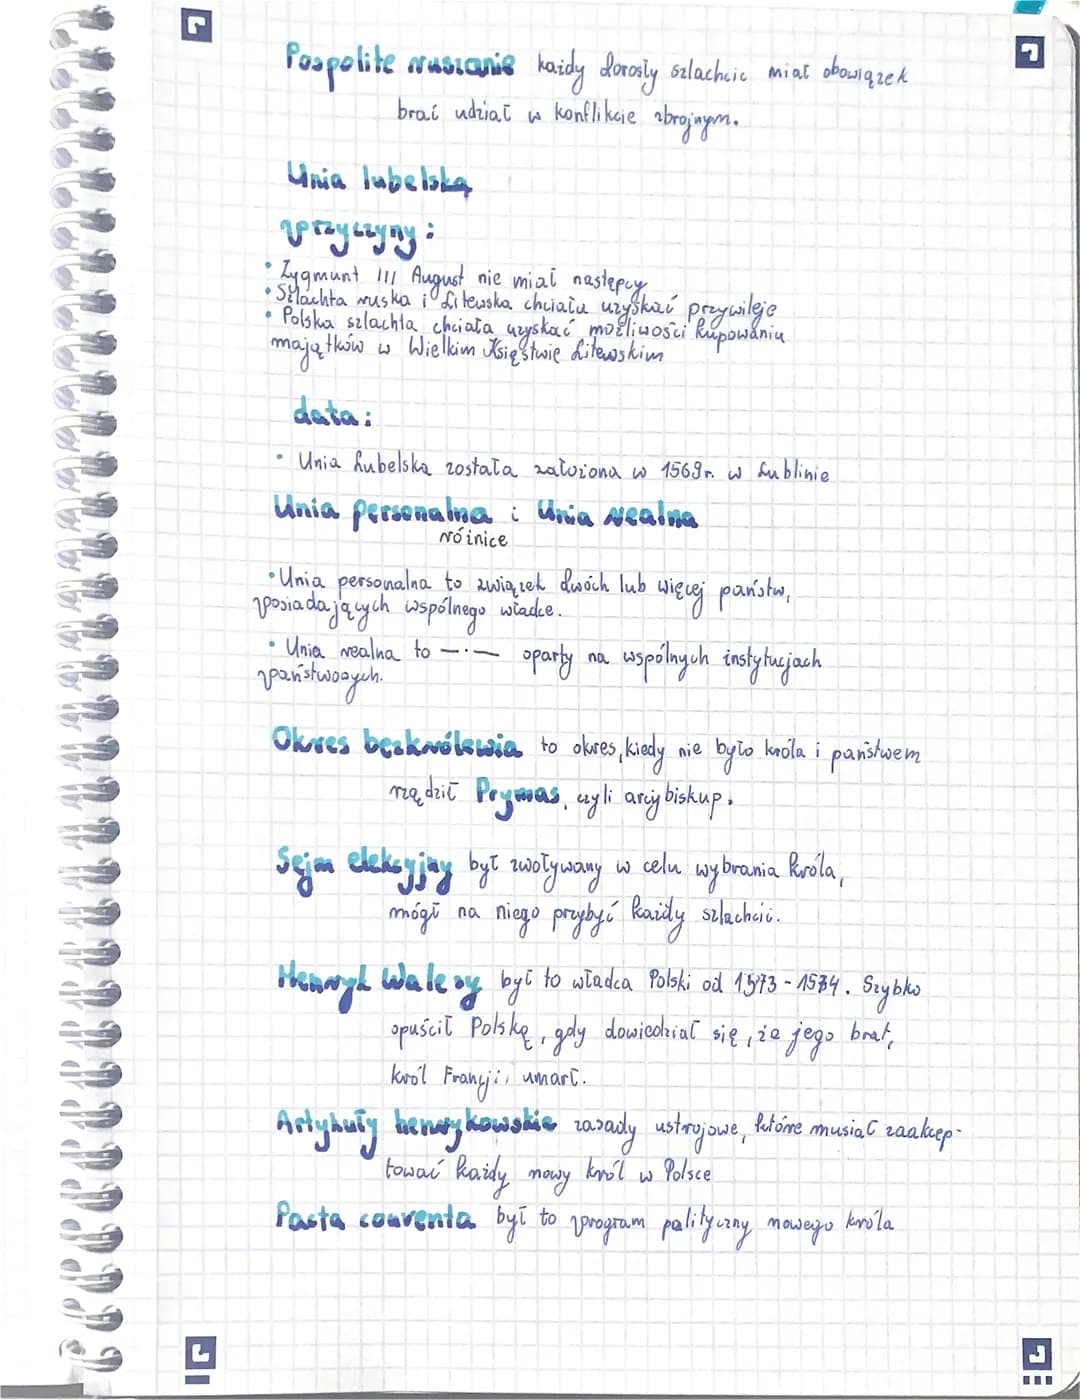 Pospolite ruszanie każdy dorosły szlachcic miał obowiązek
brać udział w konflikcie zbrojnym.
Unia lubelska
przyczyny:
• Zygmunt III August nie miał następcy
• Szlachta ruska i Litewska chciała uzyskać przywileje
• Polska szlachta chciała uzyskać możliwości kupowania
majątków w Wielkim Księstwie Litewskim
data:
• Unia Lubelska została założona w 1569r. w Lublinie
Unia personalna i Unia realna
różnice
• Unia personalna to związek dwóch lub więcej państw,
posiadających wspólnego władce.
• Unia realna to —·— oparty na wspólnych instytucjach
państwoych.
Okres bezkrólewia to okres, kiedy nie było króla i państwem
rządził Prymas, czyli arcybiskup.
Sejm elekcyjny był zwoływany w celu wybrania króla,
mógł na niego przybyć każdy szlachcic.
Henryk Walezy był to władca Polski od 1573-1574. Szybko
opuścił Polskę, gdy dowiedział się, że jego brat,
król Francji, umarł.
Artykuły henrykowskie zasady ustrojowe, które musiał zaakcep-
tować każdy nowy król w Polsce
Pacta conventa był to program polityczny nowego króla